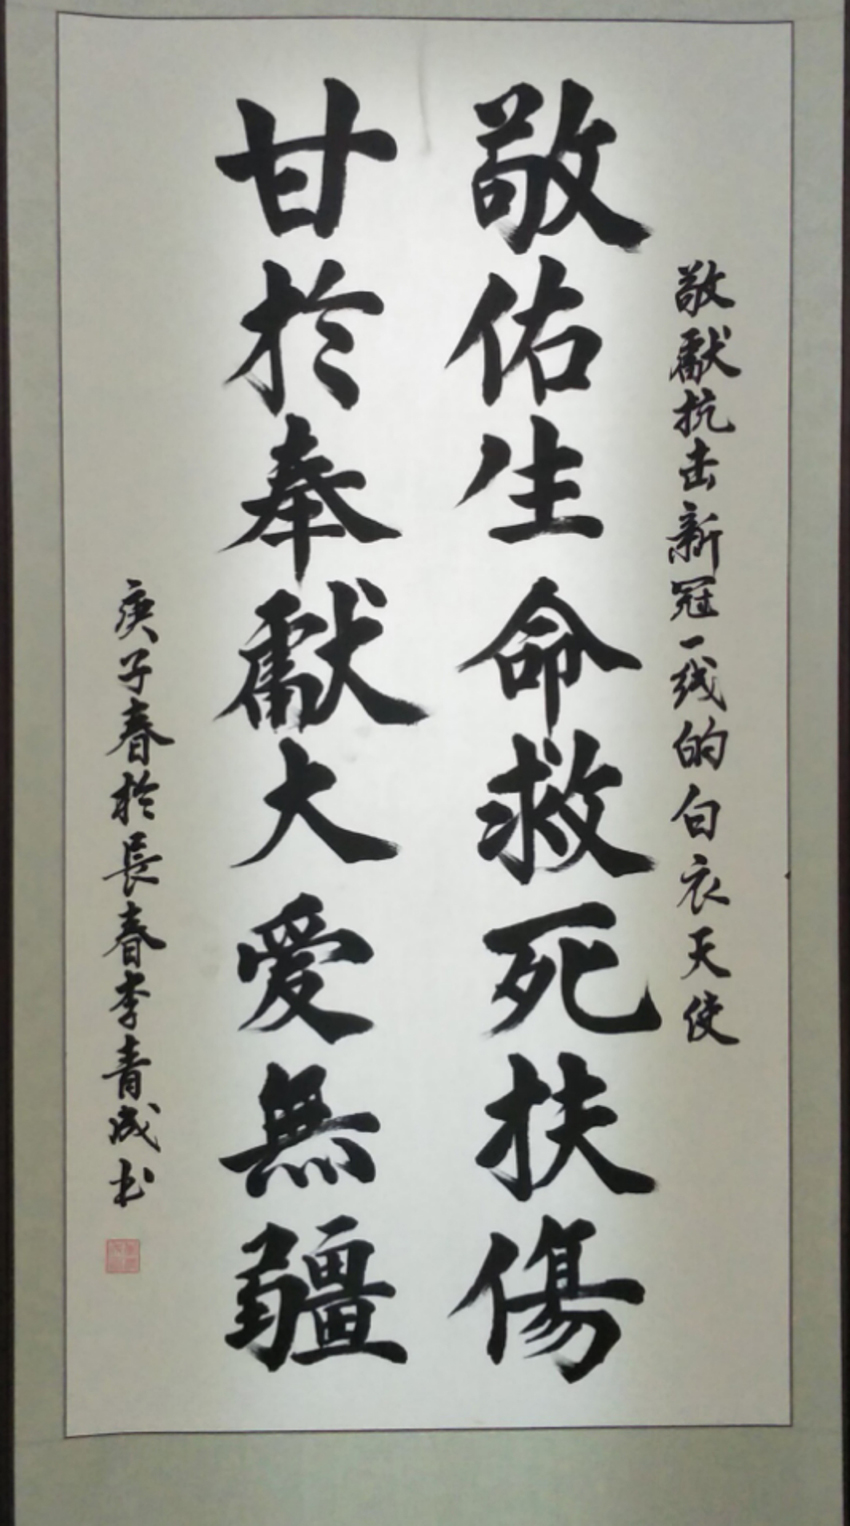 敬獻抗击新冠一线的白衣天使
敬佑生命救死扶傷
甘於奉獻大爱無疆
庚子春於長春李青成书